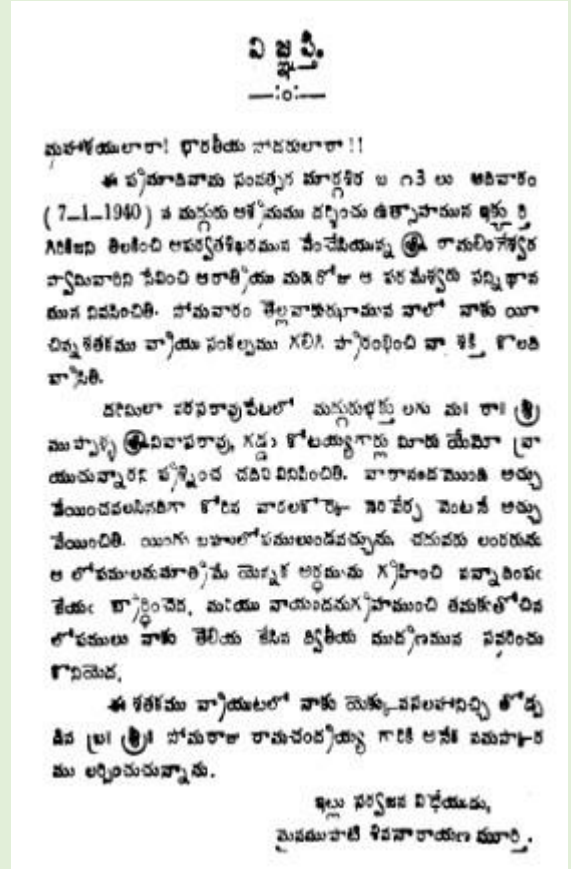 విజ్ఞప్తి.
—:o:—
మహాశయులారా! భారతీయ సోదరులారా!!
ఈ ప్రమాదినామ సంవత్సర మార్గశిర బ ౧౩ లు ఆదివారం
(7-1-1940) న మద్గురు ఆశ్రమము దర్శించు ఉత్సాహమున
గిరికేజని తిలకించి ఆపర్వతశిఖరమున వేంచేసియున్న శ్రీ రామలింగేశ్వర
స్వామివారిని సేవించి ఆరాత్రియు మఱరోజు ఆ పరమేశ్వరు సన్నిధాన
మున నివసించితి. సోమవారం తెల్లవారుఝామున నాలో నాకు యీ
చిన్నశతకము వ్రాయు సంకల్పము గలిగి ప్రారంభించి నా శక్తి కొలది
వ్రాసితి.
నరసరావుపేటలో మద్గురుభక్తు లగు మ॥ రా॥ శ్రీ
ముప్పాళ్ళ శ్రీనివాసరావు, గడ్డం కోటయ్యగార్లు మీరు యేమో వ్రా
యుచున్నారని ప్రశ్నించ చదివి వినిపించితి. వారానందమొంది అచ్చు
వేయించవలసినదిగా కోరిన వారలకోర్కె నెరవేర్ప వెంటనే అచ్చు
వేయించితి. యిందు బహులోపములుండవచ్చును. చదువరు లందరును
ఆ లోపములనుమాత్రమే యెన్నక అర్థమును గ్రహించి నన్నాదరింపఁ
జేయఁ బ్రార్థించెద, మరియు నాయందనుగ్రహముంచి తమకుతోచిన
లోపములు నాకు తెలియ జేసిన ద్వితీయ ముద్రణమున సవరించు
కొనియెద.
ఈ శతకము వ్రాయుటలో నాకు యెక్కువసలహానిచ్చి తోడ్ప
డిన బ్ర॥ శ్రీ॥ సోమరాజు రామచంద్రయ్య గారికి అనేక నమస్కార
ము లర్పించుచున్నాను.
ఇట్లు సర్వజన విధేయుడు,
మైనముపాటి శివనారాయణ మూర్తి.